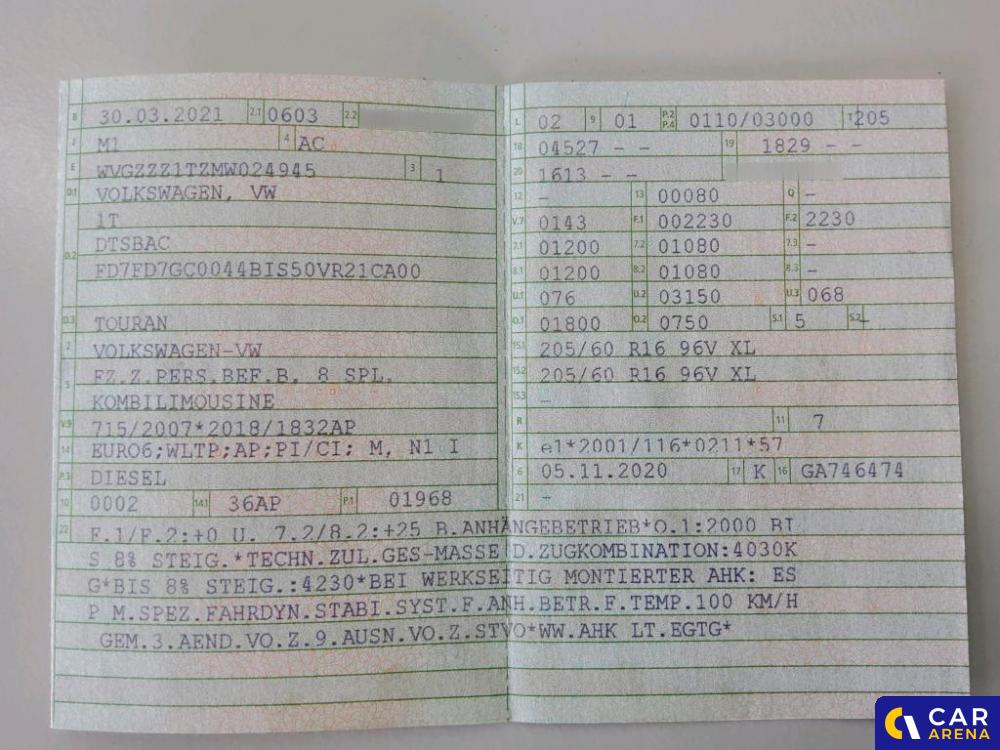 B 30.03.2021 2.1 0603 2.2
J M1 4 AC
E WVGZZZ1TZMW024945 3 1
D.1 VOLKSWAGEN, VW
1T
D.2 DTSBAC
FD7FD7GC0044BIS50VR21CA00
D.3 TOURAN
2 VOLKSWAGEN-VW
5 FZ.Z.PERS.BEF.B. 8 SPL.
KOMBILIMOUSINE
V.9 715/2007*2018/1832AP
14 EURO6;WLTP;AP;PI/CI; M, N1 I
P.3 DIESEL
10 0002 14.1 36AP P.1 01968
L 02 9 01 P.2 P.4 0110/03000 T 205
18 04527 - - 19 1829 - -
20 1613 - -
12 - 13 00080 Q -
V.7 0143 F.1 002230 F.2 2230
7.1 01200 7.2 01080 7.3 -
8.1 01200 8.2 01080 8.3 -
U.1 076 U.2 03150 U.3 068
O.1 01800 O.2 0750 S.1 5 S.2 -
15.1 205/60 R16 96V XL
15.2 205/60 R16 96V XL
15.3 -
R 11 7
K e1*2001/116*0211*57
6 05.11.2020 17 K 16 GA746474
21 -
22 F.1/F.2:+0 U. 7.2/8.2:+25 B.ANHÄNGEBETRIEB*O.1:2000 BI
S 8% STEIG.*TECHN.ZUL.GES-MASSE D.ZUGKOMBINATION:4030K
G*BIS 8% STEIG.:4230*BEI WERKSEITIG MONTIERTER AHK: ES
P M.SPEZ.FAHRDYN.STABI.SYST.F.ANH.BETR.F.TEMP.100 KM/H
GEM.3.AEND.VO.Z.9.AUSN.VO.Z.STVO*WW.AHK LT.EGTG*
CAR
ARENA